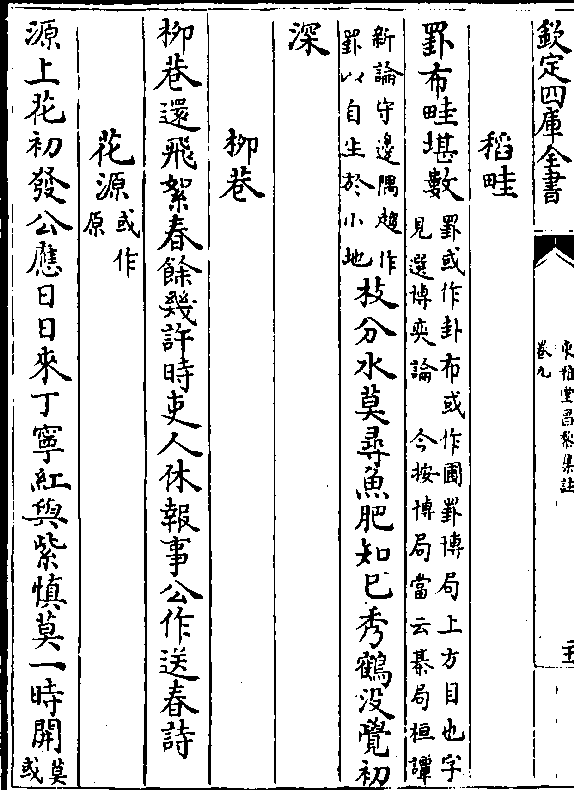 欽定四庫全書
東雅堂昌黎集註
卷九
稻畦
罫布畦堪數
罫或作卦布或作圃罫博局上方目也字
見選博奕論 今按博局當云棊局桓譚
新論守邊隅趨作
罫以自生於小地
枝分水莫尋魚肥知已秀鶴没覺初
深
柳巷
柳巷還飛絮春餘幾許時吏人休報事公作送春詩
花源
或作
原
源上花初發公應日日來丁寧紅與紫慎莫一時開
莫
或